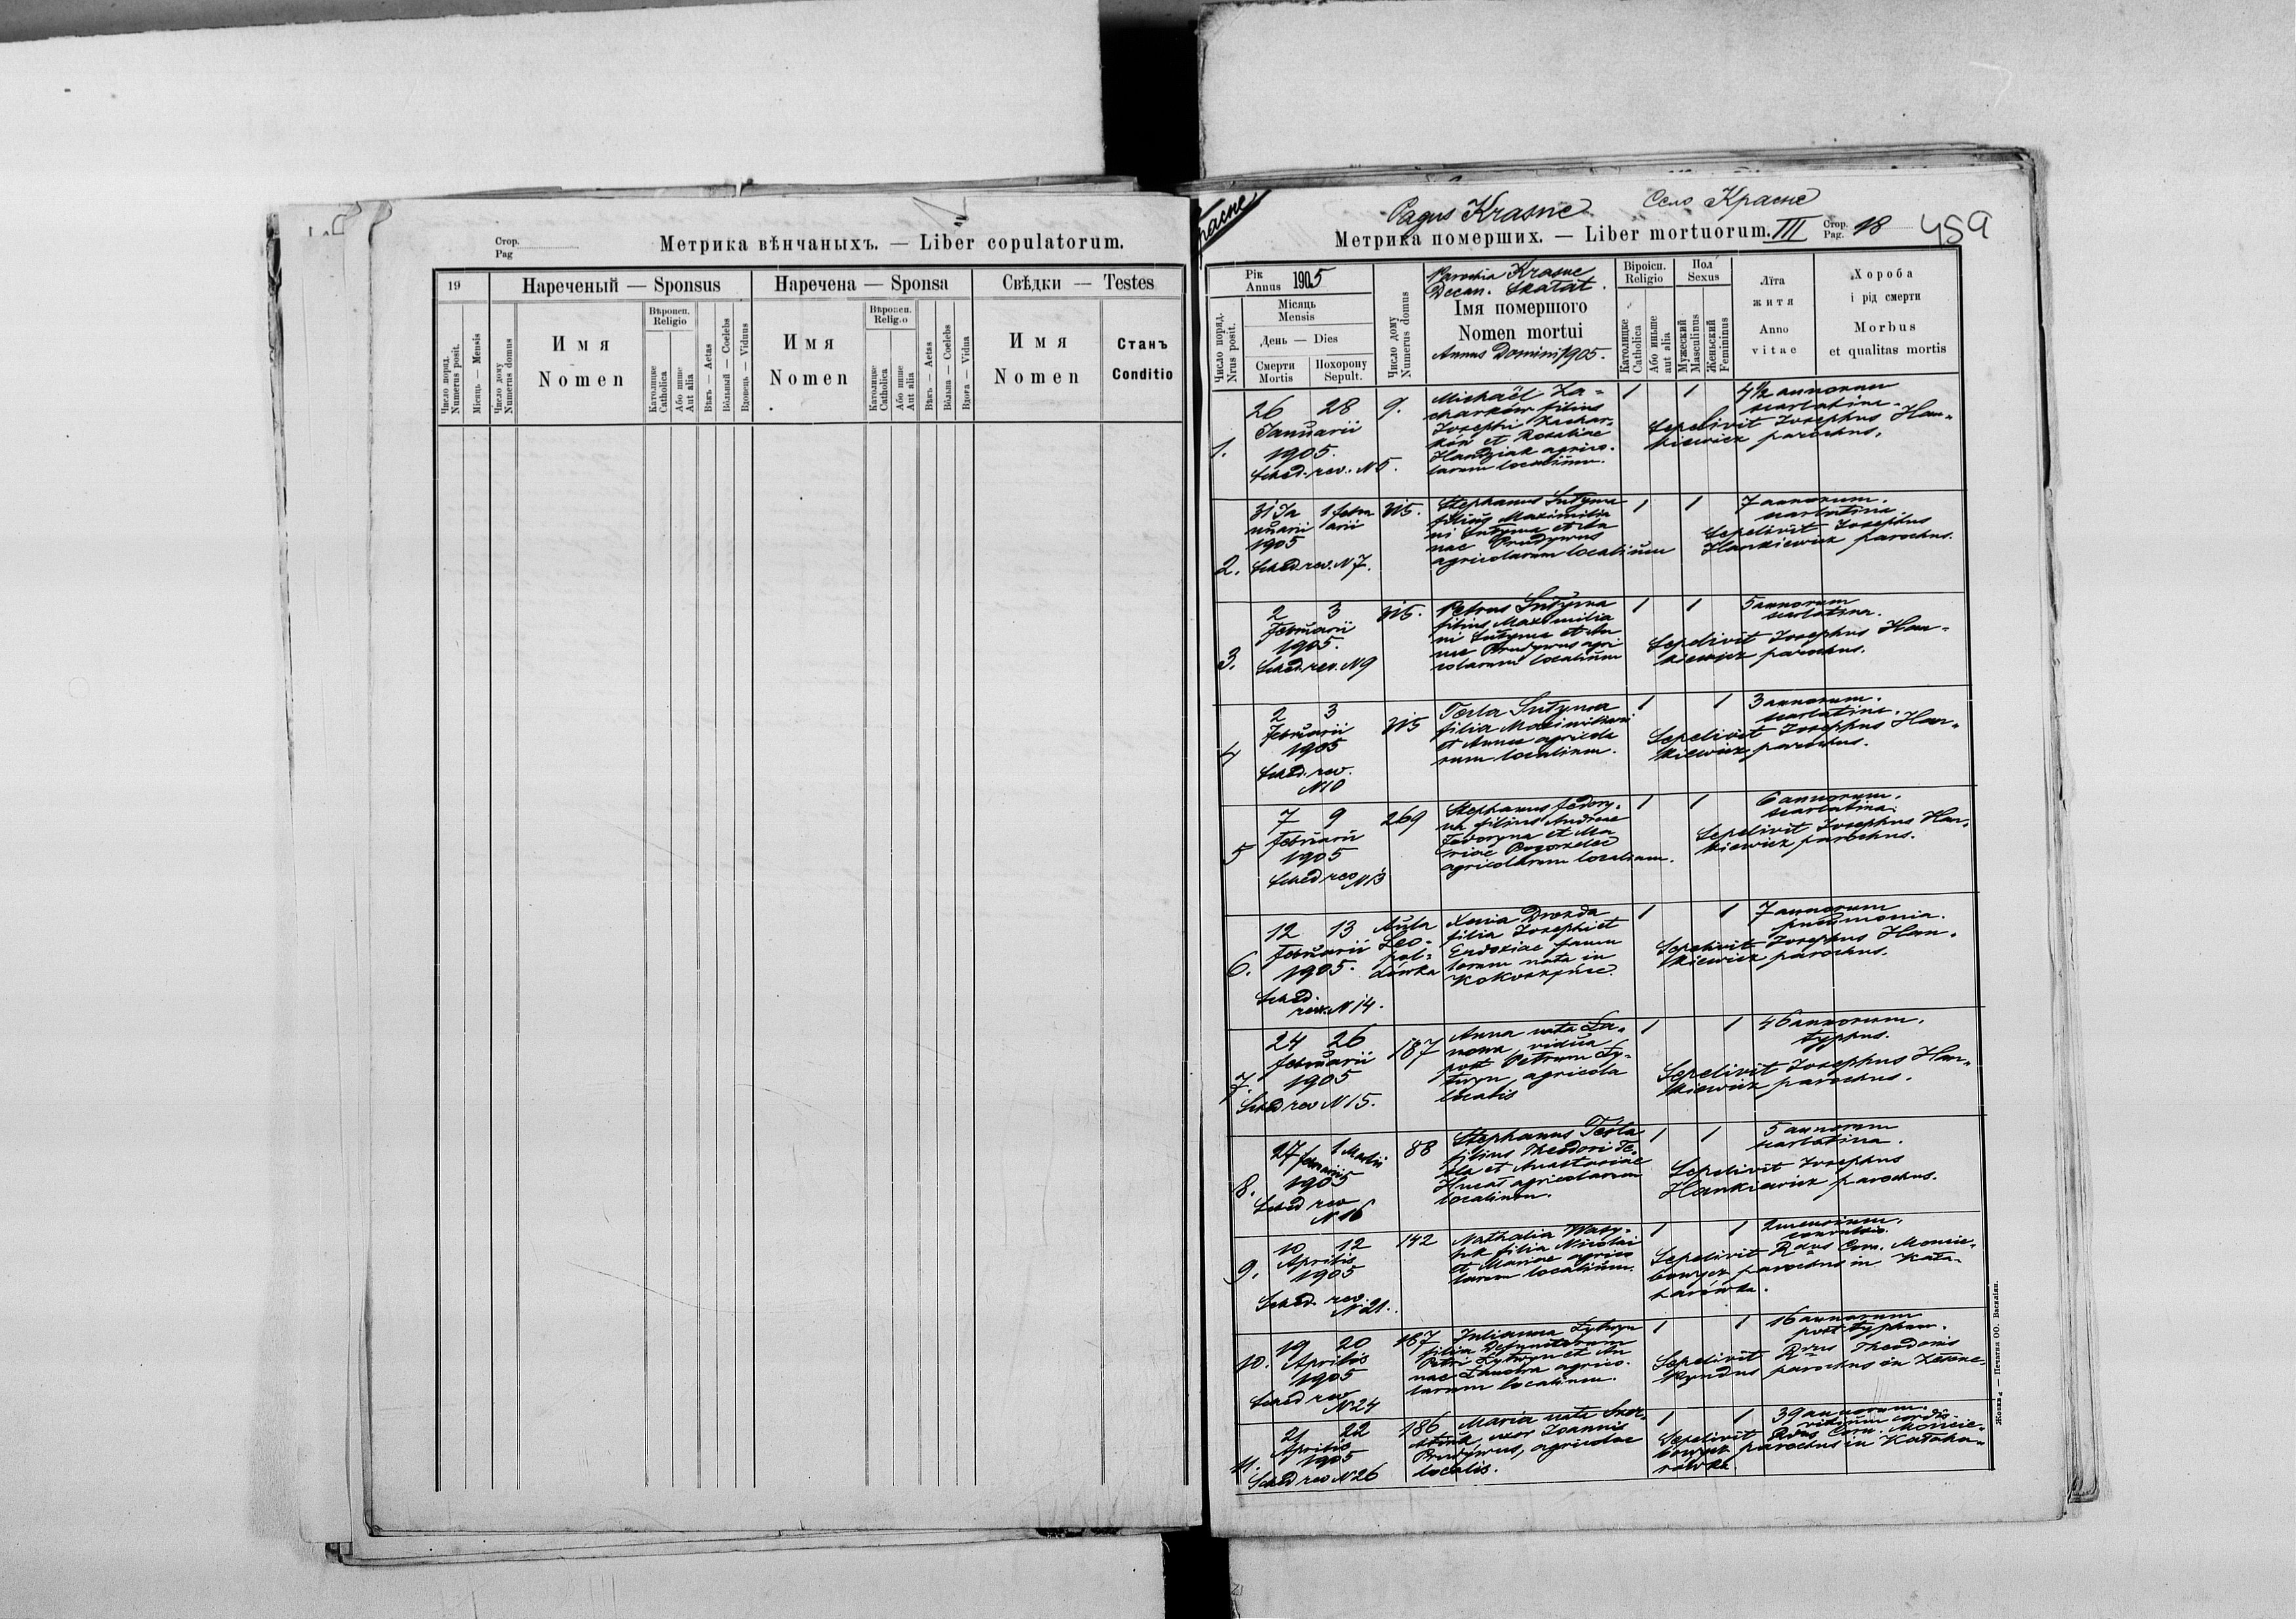 Стор.
Pag
Метрика вѣнчаныхъ. — Liber copulatorum.
19
Нареченый — Sponsus
Наречена — Sponsa
Свѣдки — Testes
Число поряд.
Numerus posit.
Місяць — Mensis
Число дому
Numerus domus
Имя
Nomen
Вѣроисп.
Religio
Католицке
Catholica
Або инше
Aut alia
Вѣкъ — Aetas
Вôльный — Coelebs
Вдовець — Viduus
Имя
Nomen
Вѣроисп.
Religio
Католицке
Catholica
Або инше
Aut alia
Вѣкъ — Aetas
Вôльна — Coelebs
Вдова — Vidua
Имя
Nomen
Станъ
Conditio
Pagus Krasne Село Красне
Метрика померших. — Liber mortuorum. III Стор. Pag. 18
459
Рік
Annus 1905
Місяць
Mensis
День — Dies
Число поряд.
Nrus posit.
Смерти
Mortis
Похорону
Sepult.
Число дому
Numerus domus
Parochia Krasne
Decan. Skałat.
Імя помершого
Nomen mortui
Annus Domini 1905.
Віроісп.
Religio
Католицке
Catholica
Або иньше
aut alia
Пол
Sexus
Мужеский
Masculinus
Женьский
Femininus
Літа
житя
Anno
vitae
Хороба
і рід смерти
Morbus
et qualitas mortis
1.
26 28
Januarii
1905.
Sched. rev. N 5.
9.
Michaël Za-
charków filius
Josephi Zachar-
ków et Rosaliae
Handziak agrico-
larum localium.
1 1
4 1/2 annorum
scarlatina.
Sepelivit Josephus Han-
kiewicz parochus.
2.
31 Ja 1 febru
nuarii arii
1905
Sched. rev. N 7.
315.
Stephanus
filius Maximilia
ni et An
nae Prudywus
agricolarum localium
1 1
7 annorum.
scarlatina.
Sepelivit Josephus
Hankiewicz parochus.
3.
2 3
Februarii
1905.
Sched. rev. N 9
315.
Petrus
filius Maximilia
ni et An
nae Prudywus agri
colarum localium
1 1
5 annorum
scarlatina.
Sepelivit Josephus Han-
kiewicz parochus.
4
2 3
Februarii
1905
Sched. rev.
N 10
315
Tecla
filia Maximiliani
et Annae agricola
rum localium.
1 1
3 annorum.
scarlatina.
Sepelivit Josephus Han-
kiewicz parochus.
5
7 9
Februarii
1905
Sched rev N 13
269
Stephanus Fedory-
na filius Andreae
Fedoryna et Ma
riae Pogorzelec
agricolarum localium.
1 1
6 annorum.
scarlatina.
Sepelivit Josephus Han-
kiewicz parochus.
6.
12 13
Februarii
1905.
Sched.
rev. N 14.
Aula
Leo-
pol-
dówka
Xenia Drozda
filia Josephi et
Eudoxiae famu
lorum nata in
Kokoszyńce.
1 1
7 annorum
pneumonia.
Sepelivit Josephus Han-
kiewicz parochus.
7.
24 26
februarii
1905
Sched rev N 15.
187
Anna nata
vidua
post Petrum Ły-
twyn, agricola
localis
1 1
46 annorum.
typhus.
Sepelivit Josephus Han-
kiewicz parochus.
8.
27 1 Martii
februarii
1905
Sched rev
N 16
88
Stephanus Tesla
filius Theodori Te-
sla et Anastasiae
Hnat agricolarum
localium.
1 1
5 annorum
scarlatina.
Sepelivit Josephus
Hankiewicz parochus.
9.
10 12
Aprilis
1905
Sched. rev.
N 21.
142
Nathalia Wasy-
luk filia Nicolai
et Mariae agrico
larum localium.
1 1
2 mensium.
Sepelivit Rdus Corn. Moncie-
bowycz parochus in Kała-
harówka.
10.
19 20
Aprilis
1905
Sched rev
N 24
187
Julianna Łytwyn
filia Defunctorum
Petri Łytwyn et An
nae agrico-
larum localium.
1 1
16 annorum
post typhum.
Sepelivit Rdus Theodorus
parochus in
11.
21 22
Aprilis
1905
Sched rev N 26
186
Maria nata
uxor Joannis
Prudywus, agricolae
localis.
1 1
39 annorum.
vitium cordis.
Sepelivit Rdus Corn. Moncie-
bowycz parochus in Kałaha-
rówka.
Жовква — Печатня ОО. Василіян.